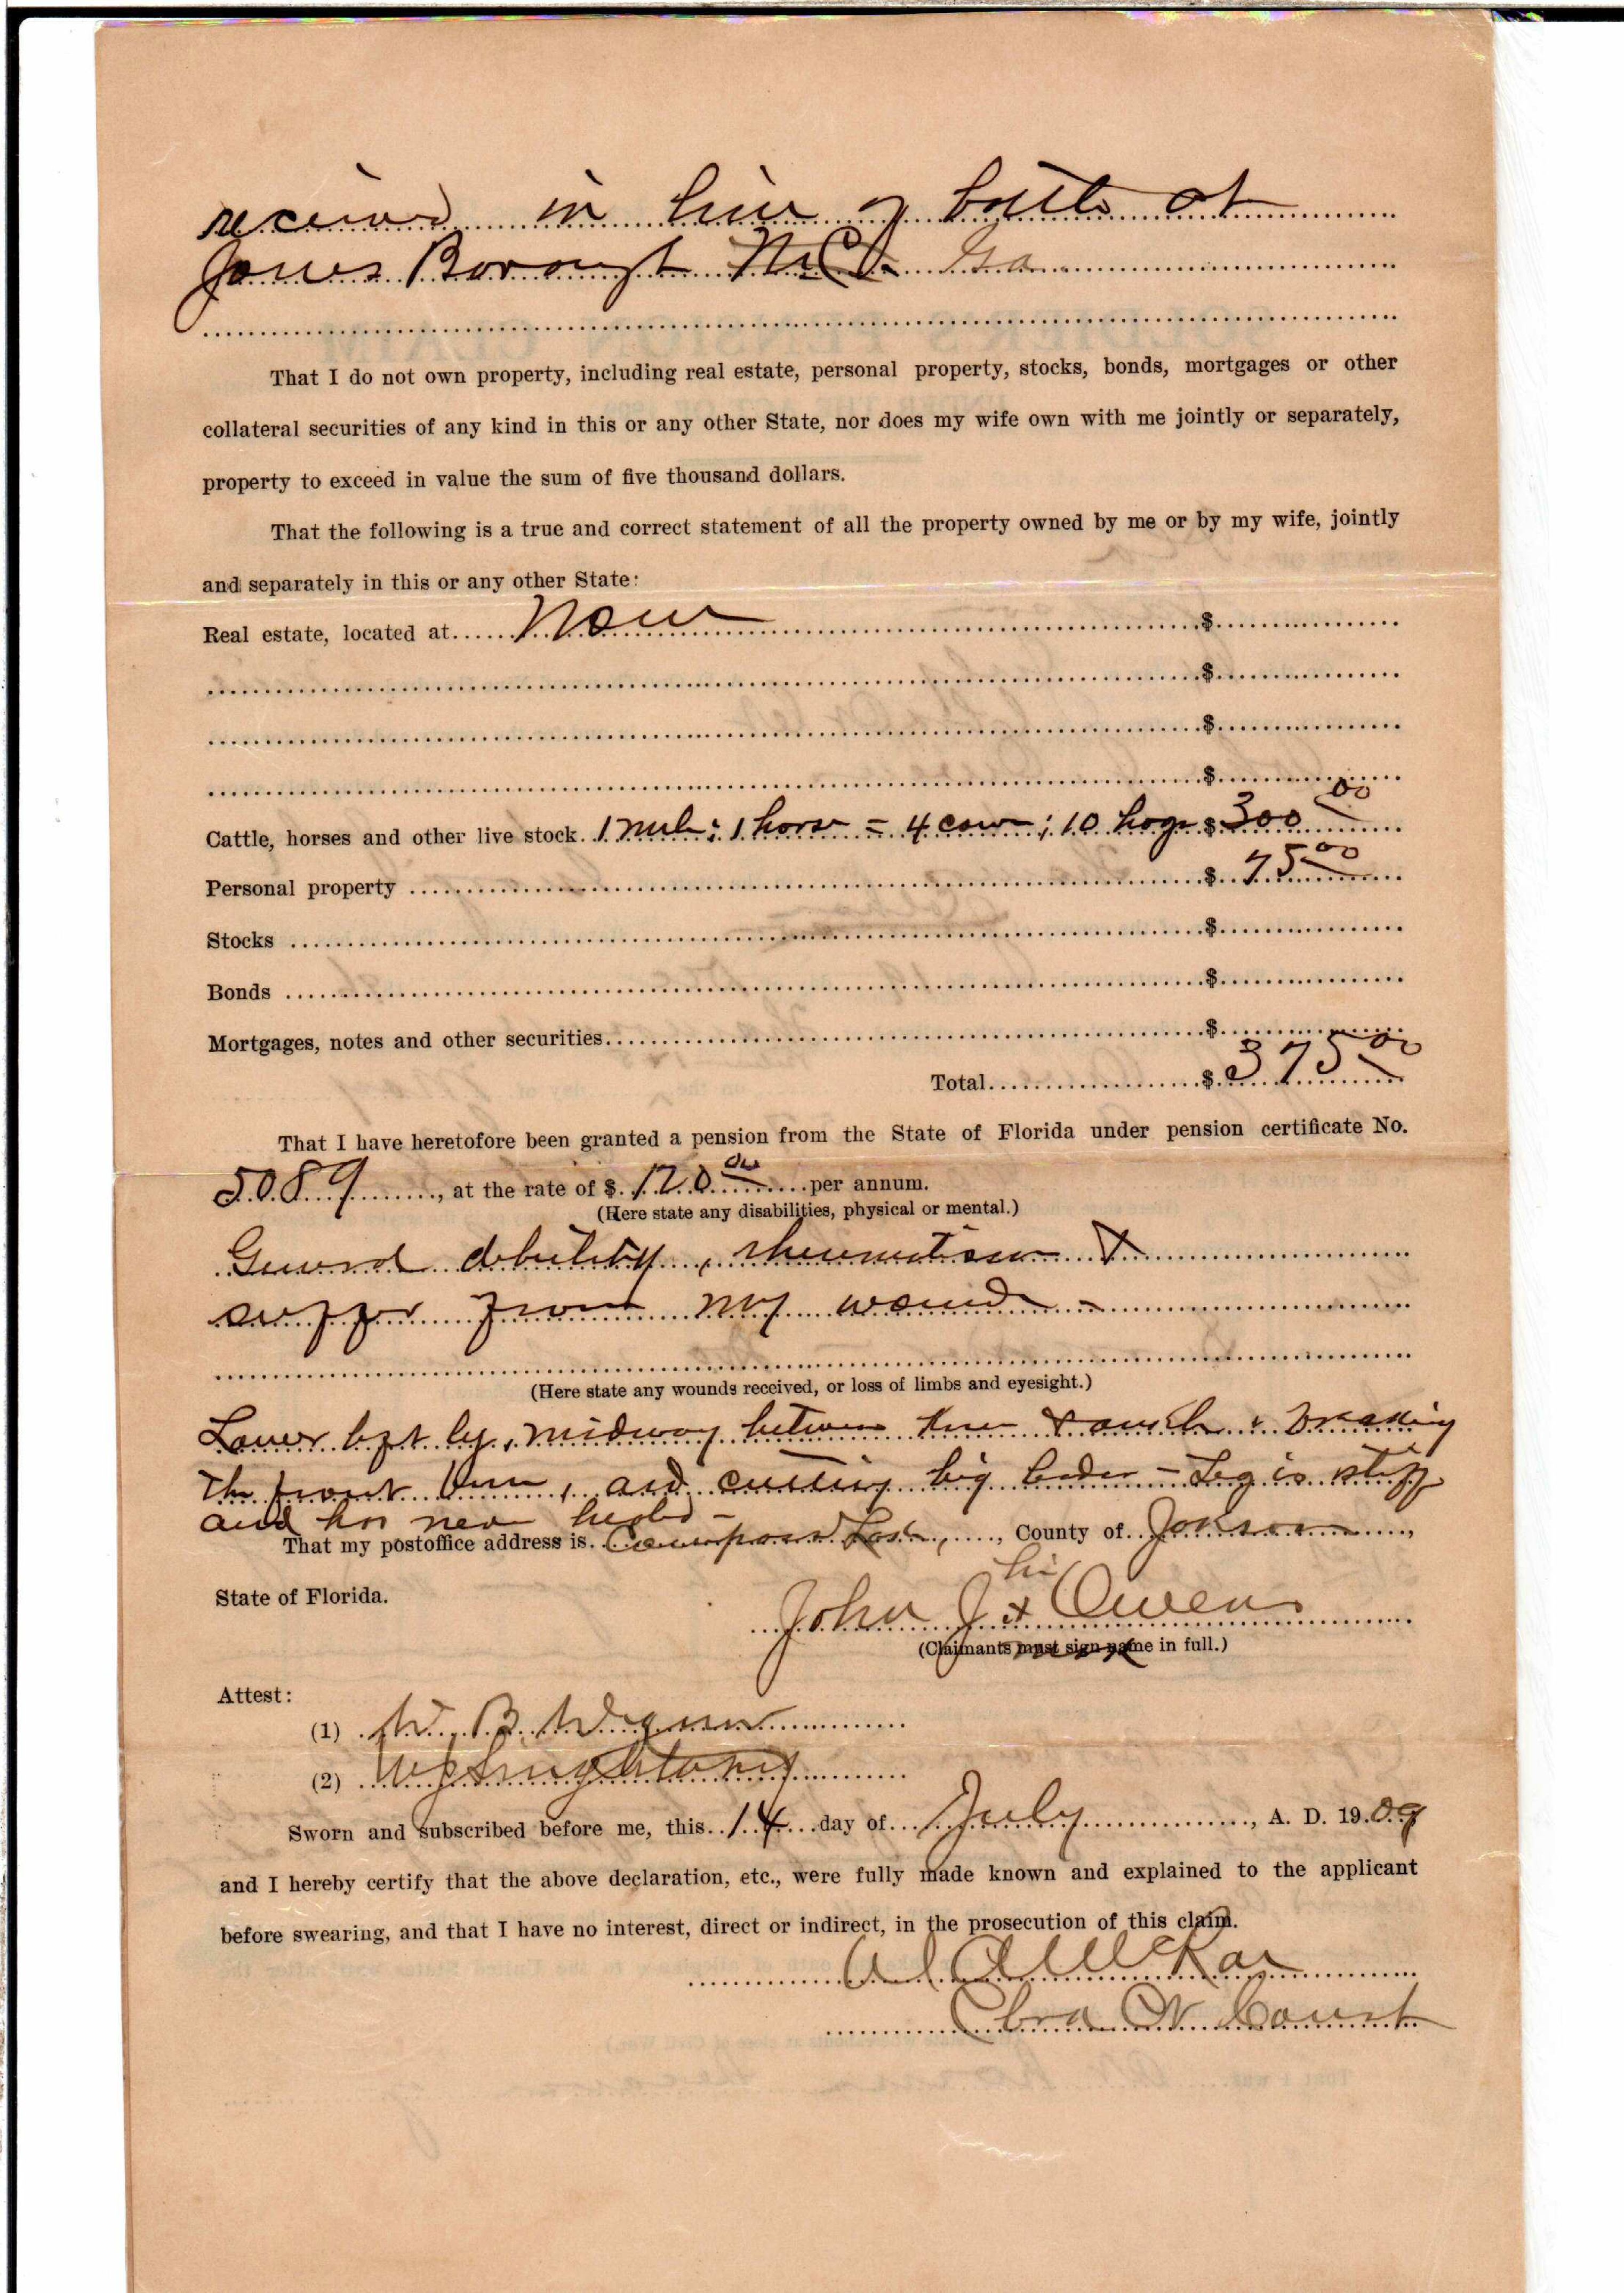 received in line of battle at
Jones Borough N.C. Ga
That I do not own property, including real estate, personal property, stocks, bonds, mortgages or other
collateral securities of any kind in this or any other State, nor does my wife own with me jointly or separately,
property to exceed in value the sum of five thousand dollars.
That the following is a true and correct statement of all the property owned by me or by my wife, jointly
and separately in this or any other State:
Real estate, located at None $
$
$
$
Cattle, horses and other live stock. 1 mule; 1 horse = 4 cows; 10 hogs $300 00
Personal property $75 00
Stocks $
Bonds $
Mortgages, notes and other securities $
Total $375 00
That I have heretofore been granted a pension from the State of Florida under pension certificate No.
5089, at the rate of $120 00 per annum.
(Here state any disabilities, physical or mental.)
General debility, rheumatism &
suffer from my wound -
(Here state any wounds received, or loss of limbs and eyesight.)
Lower left leg, midway between knee & ankle & breaking
the front bone, and cutting big leader - Leg is stiff
and has never healed -
That my postoffice address is. Compass Lake, County of Jackson,
State of Florida.
his
John J. x Owens
mark
(Claimants must sign name in full.)
Attest:
(1) W. B.
(2)
Sworn and subscribed before me, this 14 day of July, A. D. 1909
and I hereby certify that the above declaration, etc., were fully made known and explained to the applicant
before swearing, and that I have no interest, direct or indirect, in the prosecution of this claim.
Court